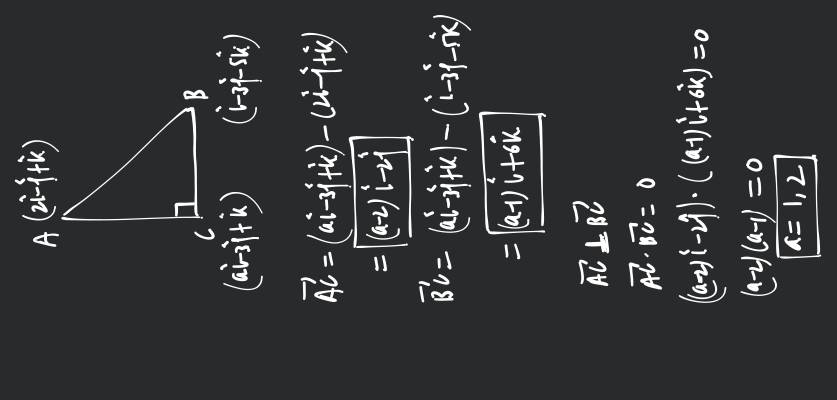 A (2i-j+k)
B (i-3j-5k)
C (ai-3j+k)
AC = (ai-3j+k) - (2i-j+k)
= (a-2)i-2j
BC = (ai-3j+k) - (i-3j-5k)
= (a-1)i+6k
AC ⊥ BC
AC · BC = 0
((a-2)i-2j) · ((a-1)i+6k) = 0
(a-2)(a-1) = 0
a = 1, 2